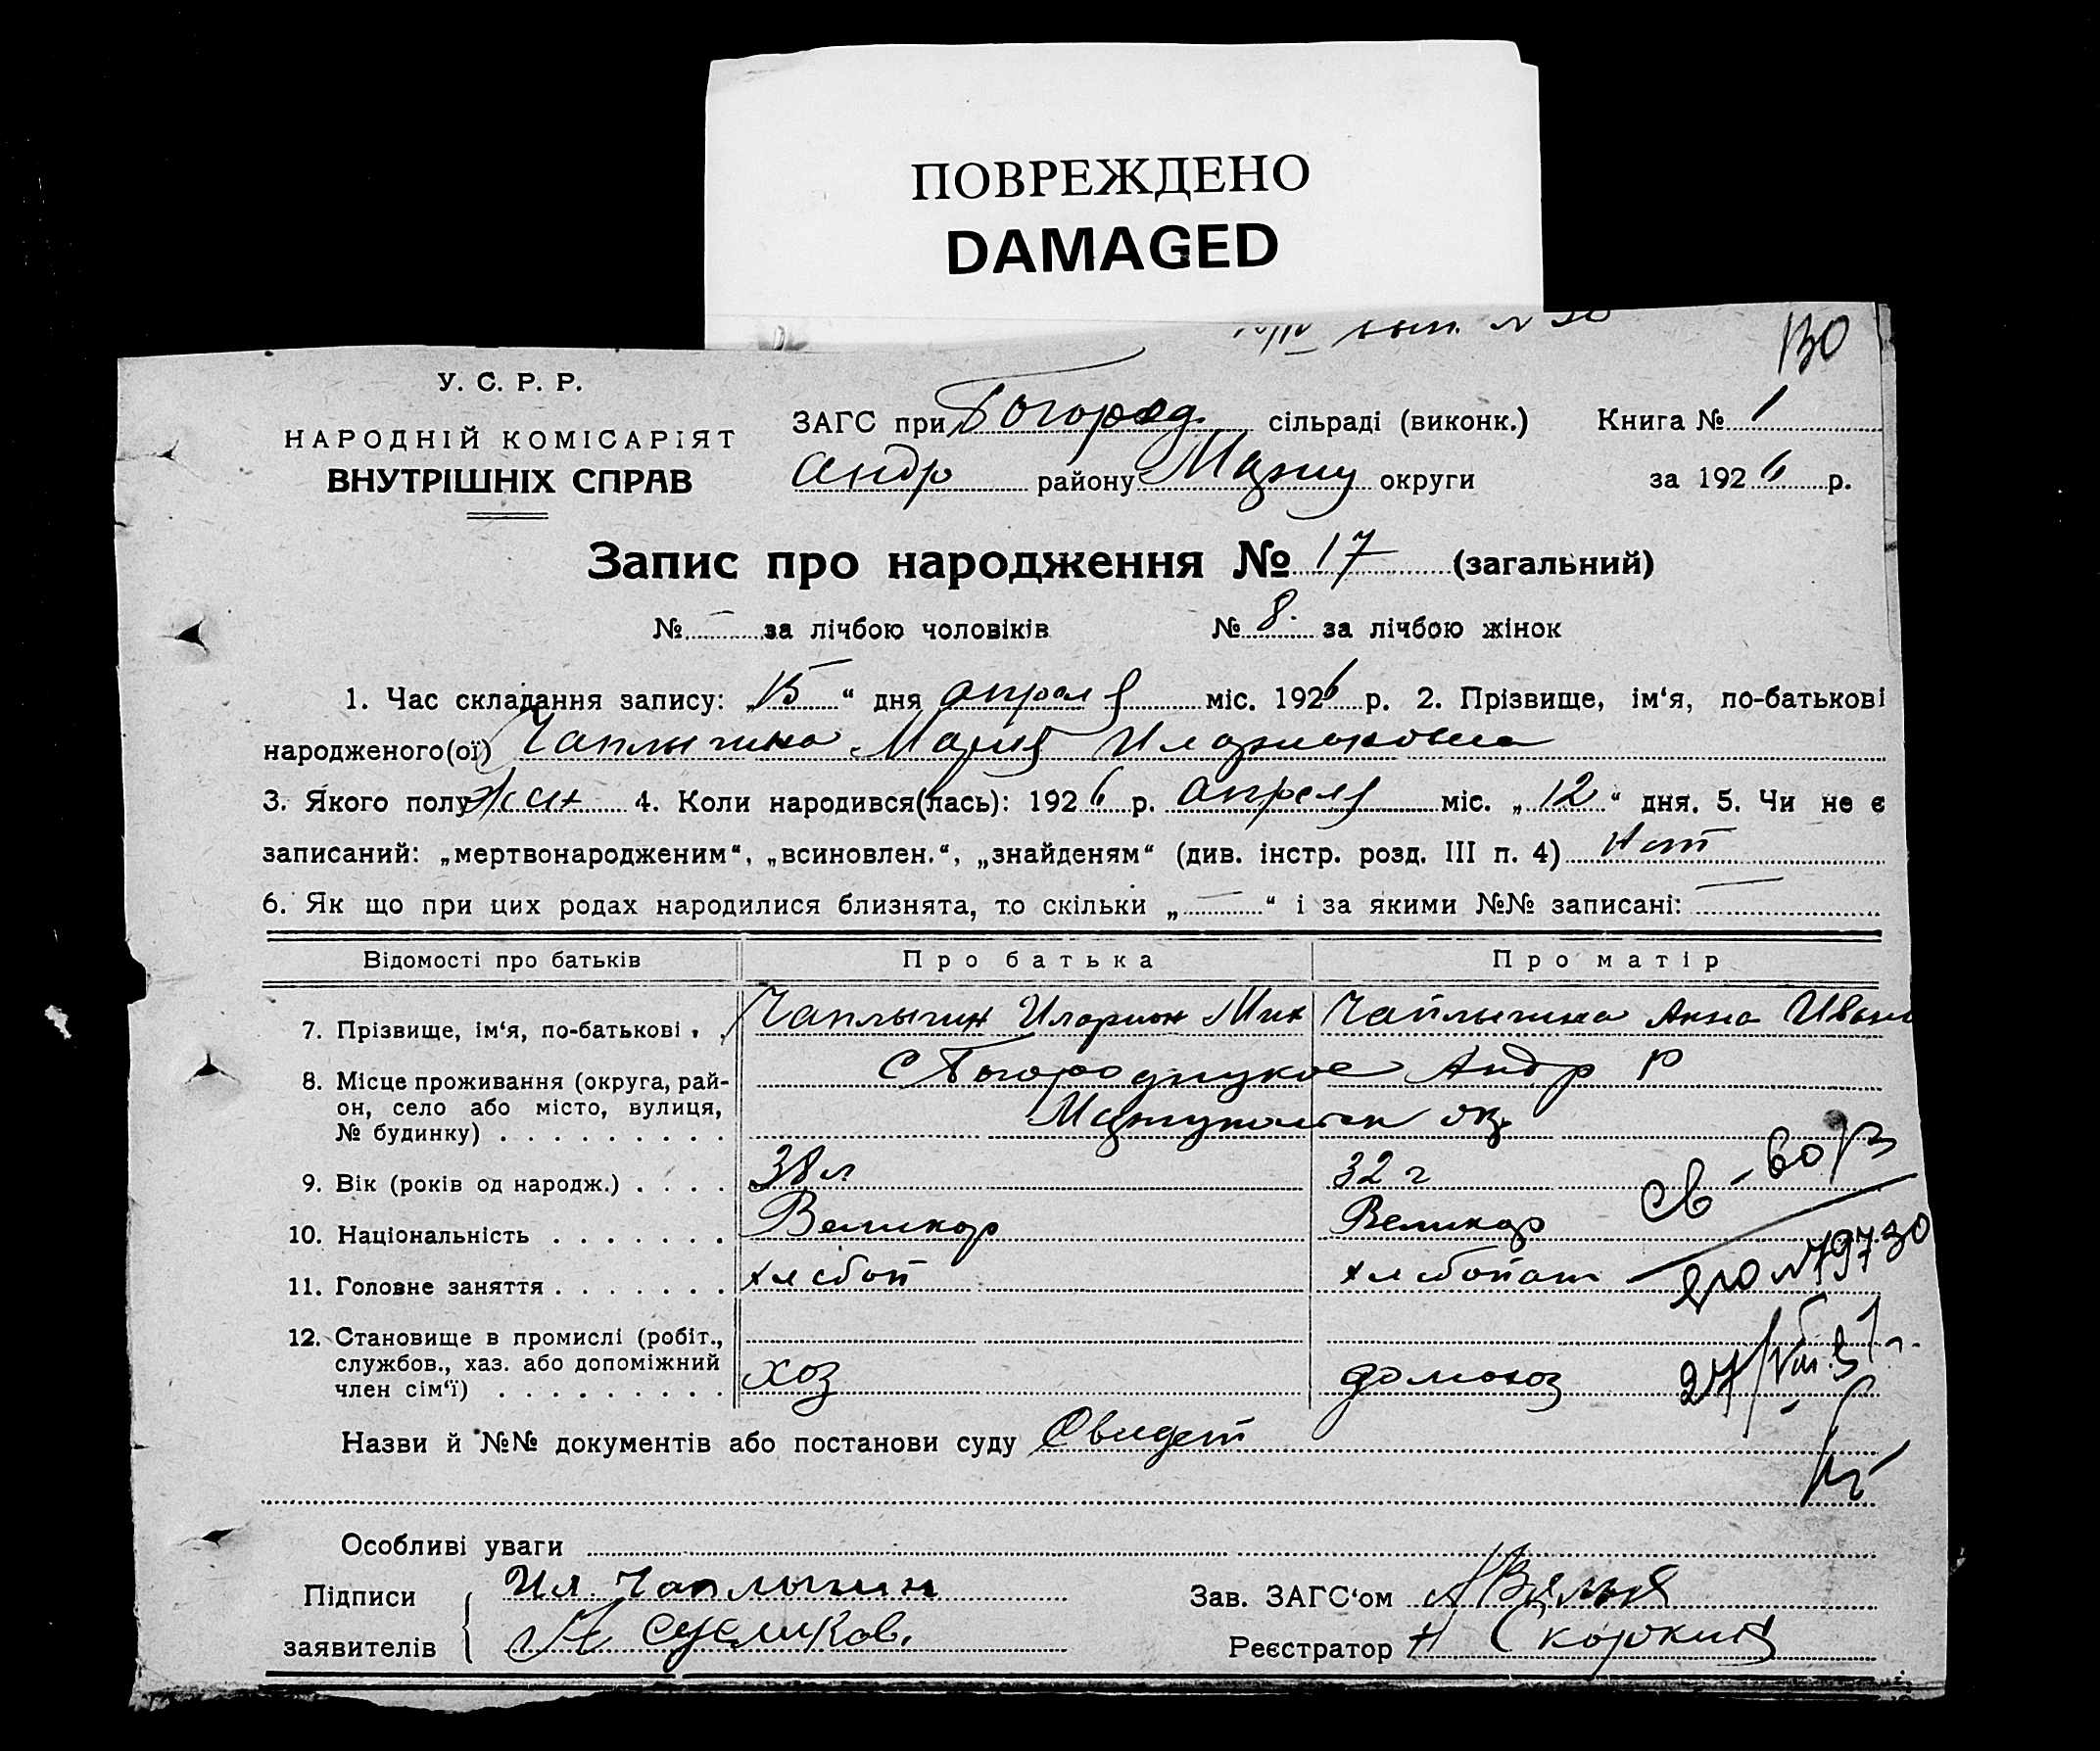 ПОВРЕЖДЕНО
DAMAGED
130
У. С. Р. Р.
НАРОДНІЙ КОМІСАРІЯТ
ВНУТРІШНІХ СПРАВ
ЗАГС при Богород. сільраді (виконк.) Книга № 1
Андр району Мариу округи за 1926 р.
Запис про народження № 17 (загальний)
№ — за лічбою чоловіків № 8. за лічбою жінок
1. Час складання запису: „15“ дня апреля міс. 1926 р. 2. Прізвище, ім‘я, по-батькові
народженого(ої) Чаплыгина Мария Иларионовна
3. Якого полу жен 4. Коли народився(лась): 1926 р. апреля міс. „12“ дня. 5. Чи не є
записаний: „мертвонародженим“, „всиновлен.“, „знайденям“ (див. інстр. розд. III п. 4) Нет
6. Як що при цих родах народилися близнята, то скільки „—“ і за якими №№ записані: —
Відомості про батьків Про батька Про матір
7. Прізвище, ім‘я, по-батькові . . Чаплыгин Иларион Мих Чаплыгина Анна Ивано
8. Місце проживання (округа, рай- С Богородицкое Андр Р
он, село або місто, вулиця, Мариупольск ок.
№ будинку) . . . . . . . . . .
9. Вік (років од народж.) . . . . 38 л 32 г
10. Національність . . . . . . . Великор Великор
11. Головне заняття . . . . . . . хлебоп хлебопаш
12. Становище в промислі (робіт.,
службов., хаз. або допоміжний
член сім‘ї) . . . . . . . . . . хоз домохоз
27/VIII.51 г.
Назви й №№ документів або постанови суду Свидет
Особливі уваги
Підписи Ил. Чаплыгин Зав. ЗАГС‘ом
заявителів Реєстратор Н Скоркин